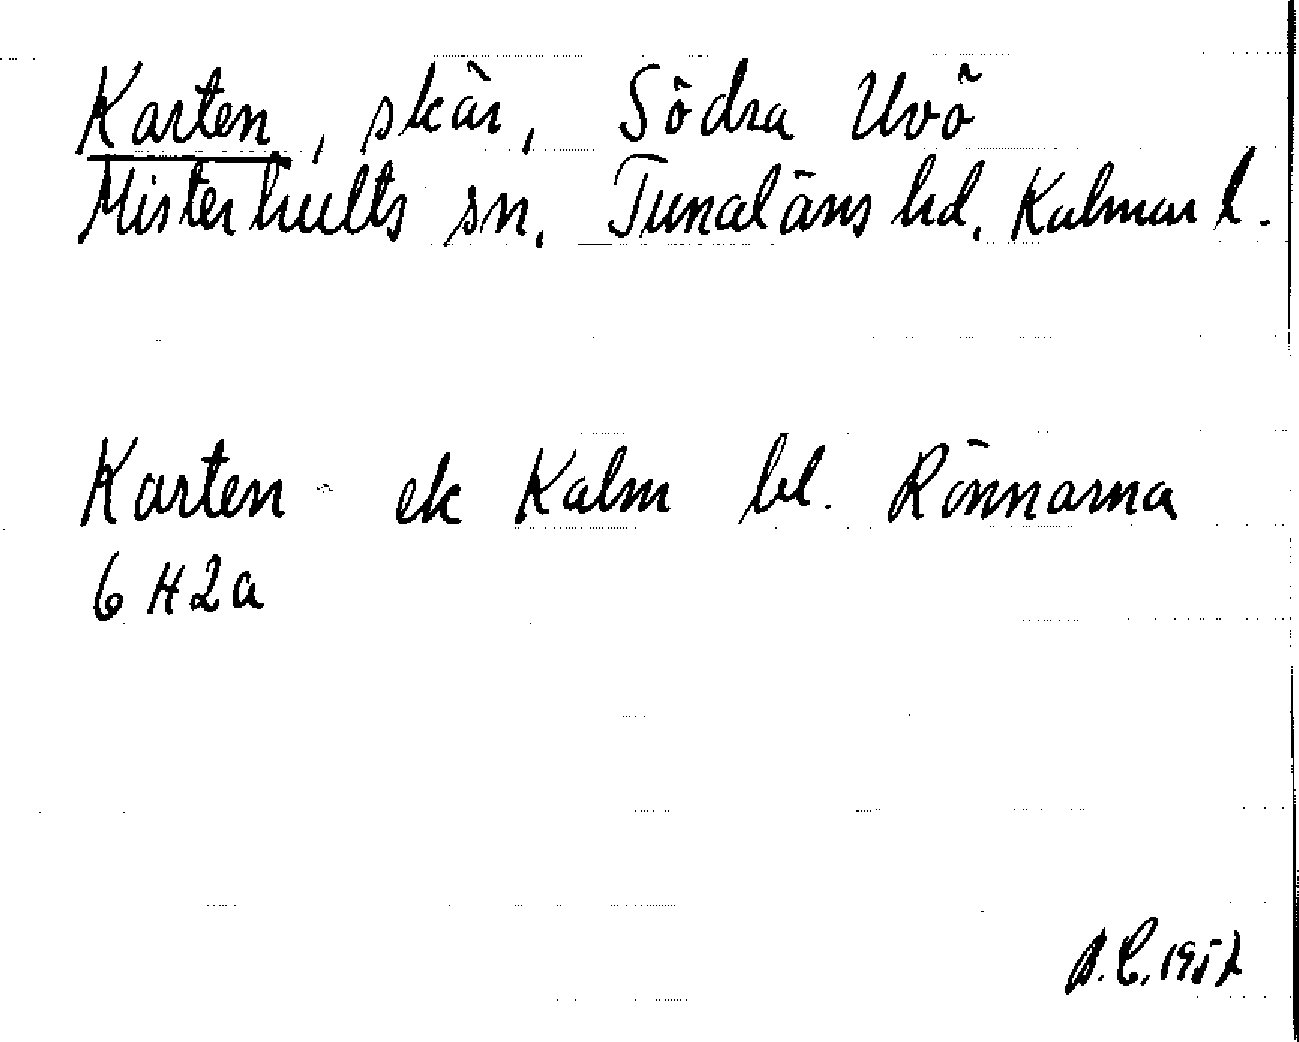 Karten, skär, Södra Uvö
Misterhults sn. Tunaläns hd. Kalmar l.
Karten - ek Kalm bl. Rönnarna
6 H 2 a
1957